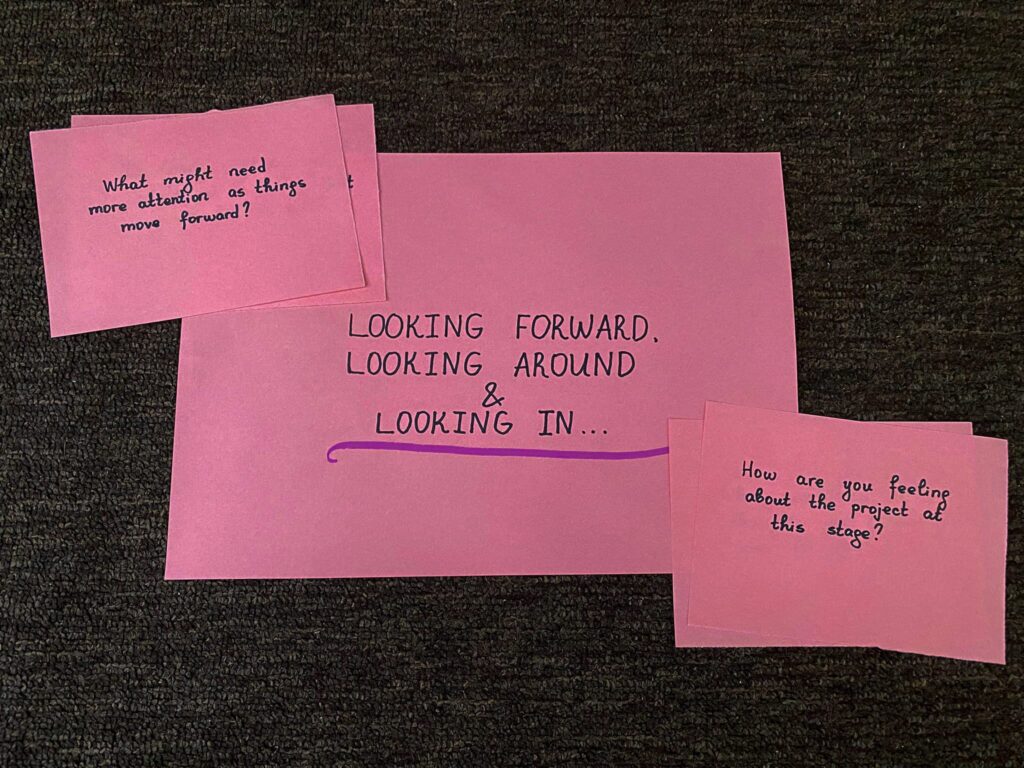 What might need
more attention as things
move forward?
LOOKING FORWARD.
LOOKING AROUND
&
LOOKING IN...
How are you feeling
about the project at
this stage?